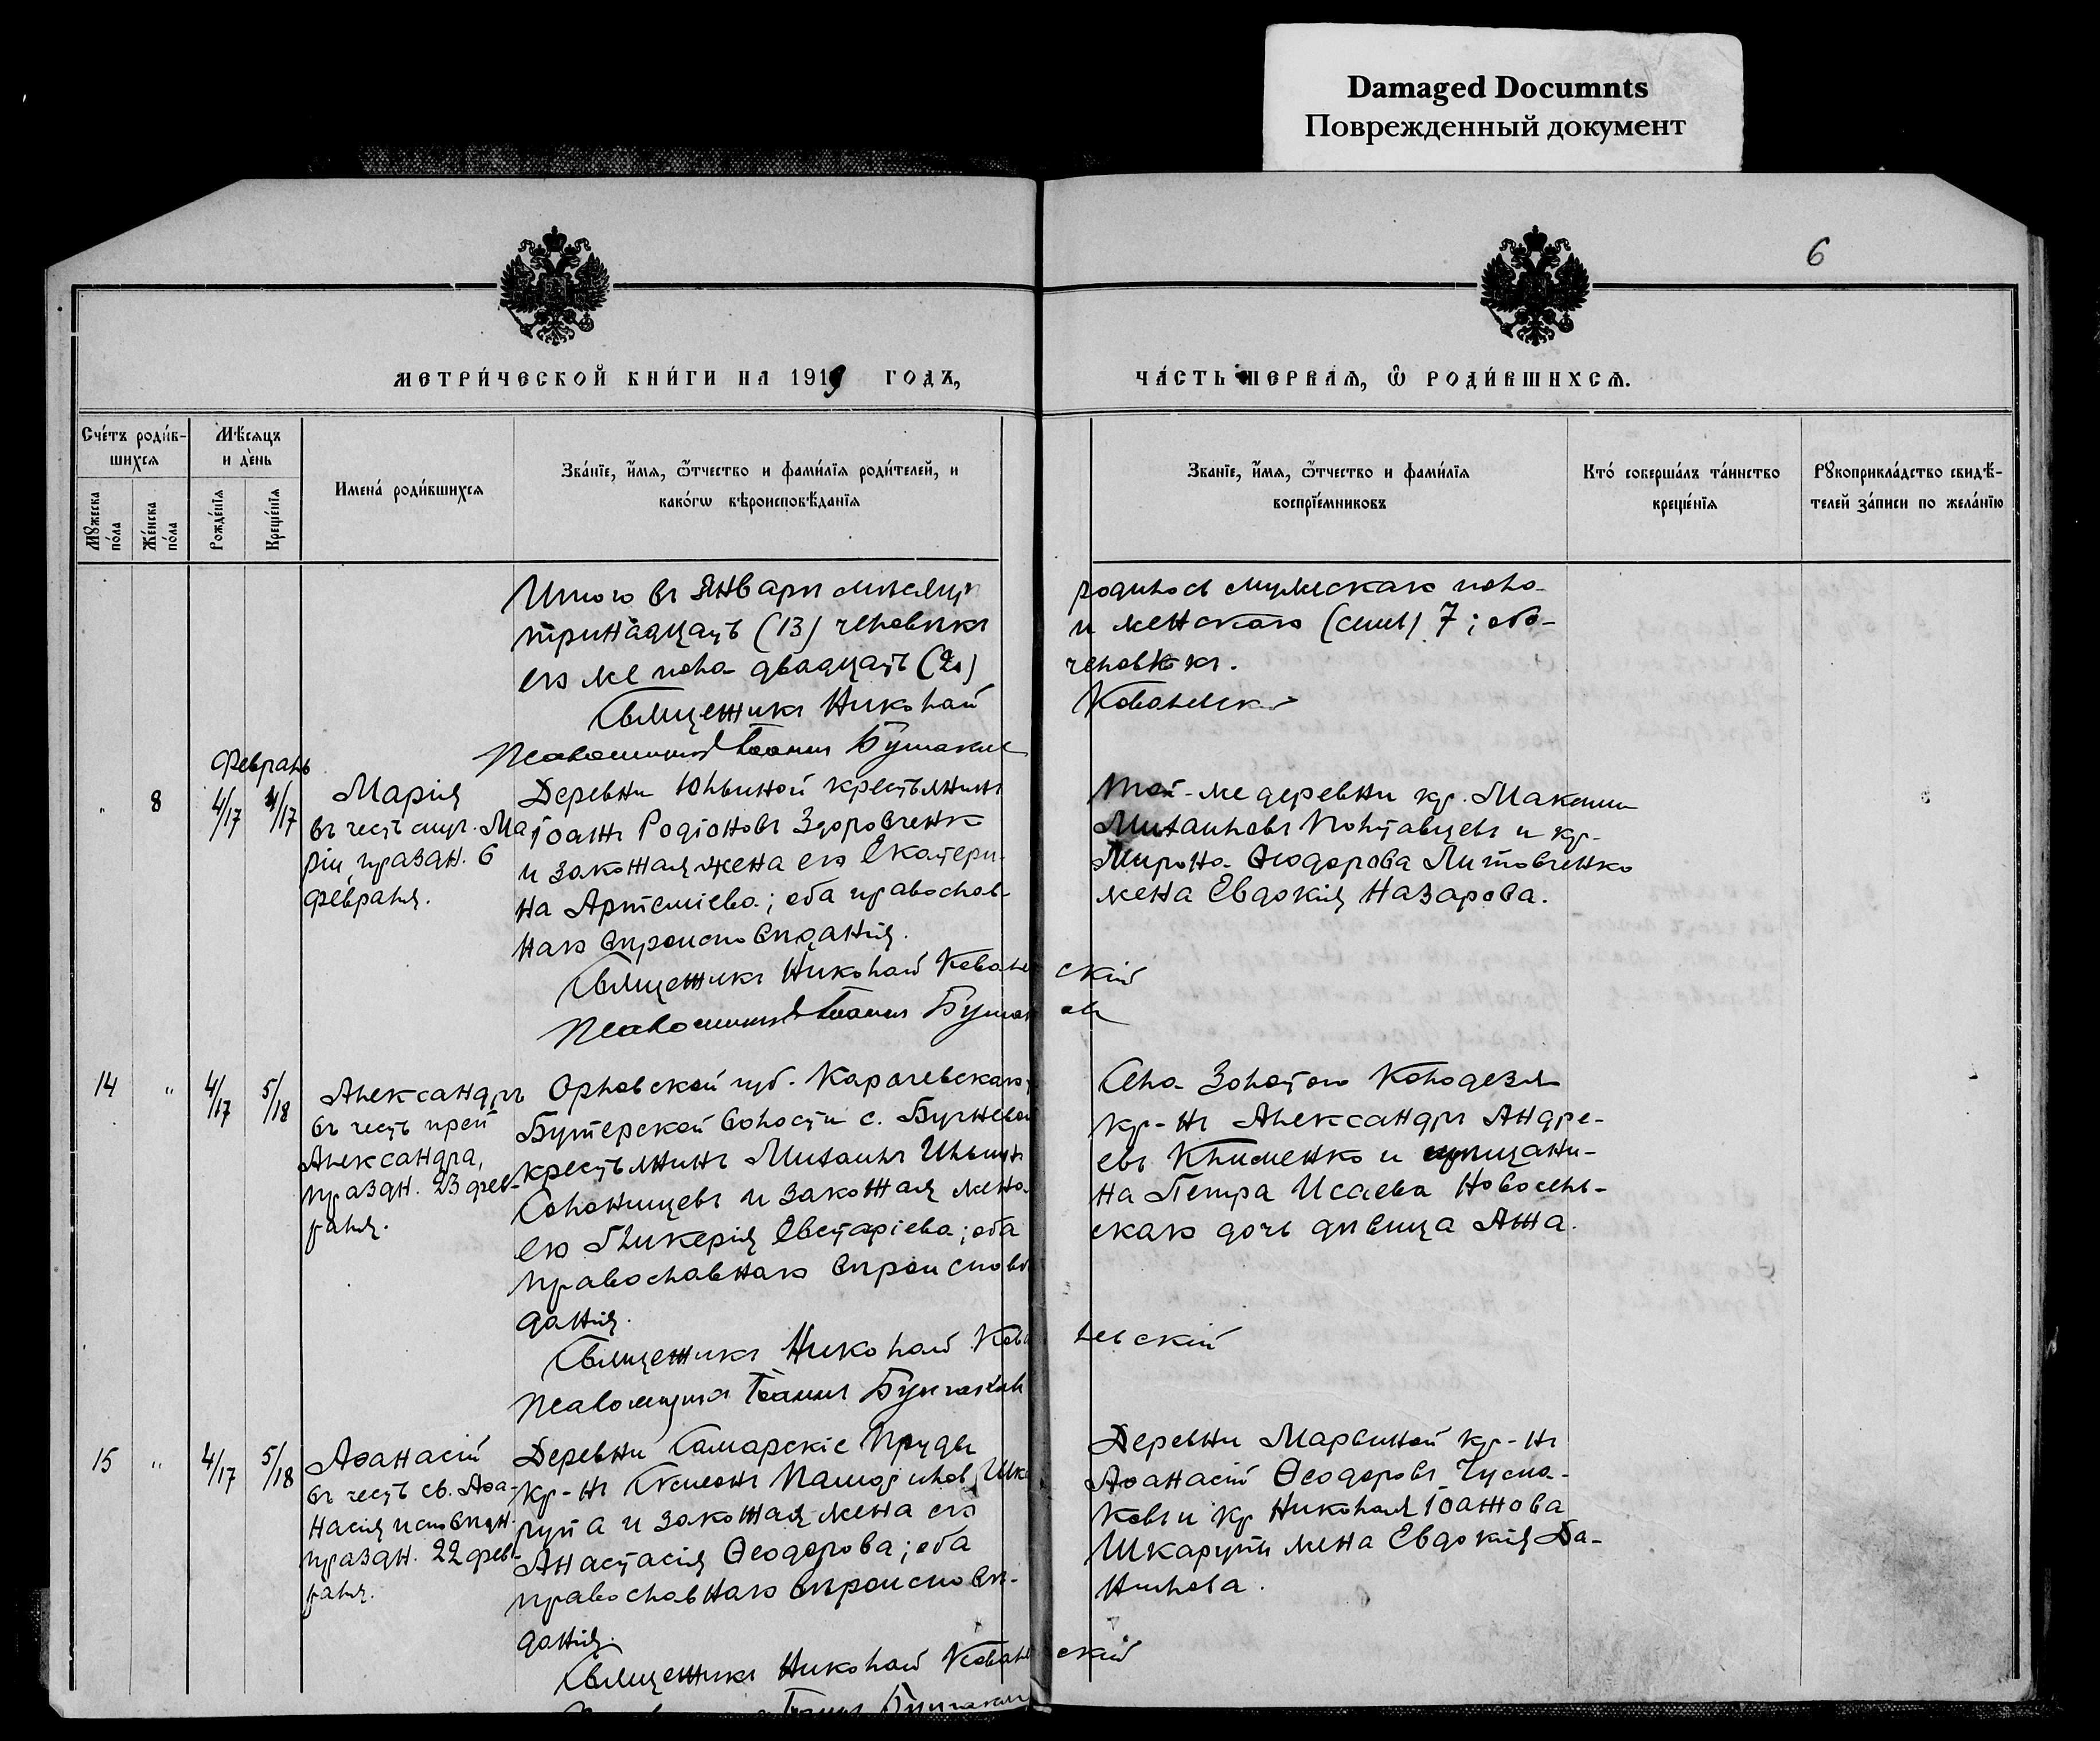 Damaged Documnts
Поврежденный документ
6
МЕТРИ́ЧЕСКОЙ КНИ́ГИ НА 1919 ГОДЪ,
ЧА́СТЬ ПЕРВАЯ, Ѡ РОДИ́ВШИХСЯ.
Сче́тъ роди́в-
шихся
Мѣ́сяцъ
и де́нь
Мꙋжеска по́ла
Же́нска по́ла
Рожде́нїя
Креще́нїя
Имена́ роди́вшихся
Зва́нїе, и҆́мя, ѻ҆́тчество и фами́лїя роди́телей, и
како́гѡ вѣроисповѣ́данїя
Зва́нїе, и҆́мя, ѻ҆́тчество и фами́лїя
воспрїе́мниковъ
Кто́ соверша́лъ та́инство
креще́нїя
Рꙋкоприкла́дство свидѣ́-
телей за́писи по жела́нїю
Итого въ Январѣ мѣсяцѣ родилось мужескаго пола
тринадцать (13) человѣкъ и женскаго (семь) 7; обо-
его же пола двадцать (20) человѣкъ.
Священникъ Николай Ковалевск
Псаломщикъ Іоаннъ
Февраль
" 8 4/17 4/17
Марія
въ честь Ма
ріи, праздн. 6
февраля.
Деревни Юльиной крестьянинъ
Іоаннъ Родіоновъ Здоровченко
и законная жена его Екатери-
на Артеміева; оба православ-
наго вѣроисповѣданія.
Священникъ Николай Ковалевскій
Псаломщикъ Іоаннъ
Той-же деревни кр. Максим
Михаиловъ Полтавцевъ и кр.
Мирона Ѳеодорова Литовченко
жена Евдокія Назарова.
14 " 4/17 5/18
Александръ
въ честь преп
Александра,
праздн. 23 фев-
раля.
Орловской губ. Карачевскаго
Бутерской волости с.
крестьянинъ Михаилъ Ильинъ
Солонищевъ и законная жена
его Гликерія Евстафіева; оба
православнаго вѣроисповѣ
данія.
Священникъ Николай Ковалевскій
Псаломщикъ Іоаннъ
Села Золотого Колодезя
кр-нъ Александръ Андре-
евъ Клименко и мѣщани-
на Петра Исаева Новосель-
скаго дочь дѣвица Анна.
15 " 4/17 5/18
Аѳанасій
въ честь св. Аѳа-
насія исповѣдн.
праздн. 22 фев-
раля.
Деревни Самарскіе Пруды
кр-нъ Симеонъ Шка
рупа и законная жена его
Анастасія Ѳеодорова; оба
православнаго вѣроисповѣ-
данія.
Священникъ Николай Ковалевскій
Деревни Марьиной кр-нъ
Аѳанасій Ѳеодоровъ
ковъ и кр Николая Іоаннова
Шкарупы жена Евдокія Да-
нилова.